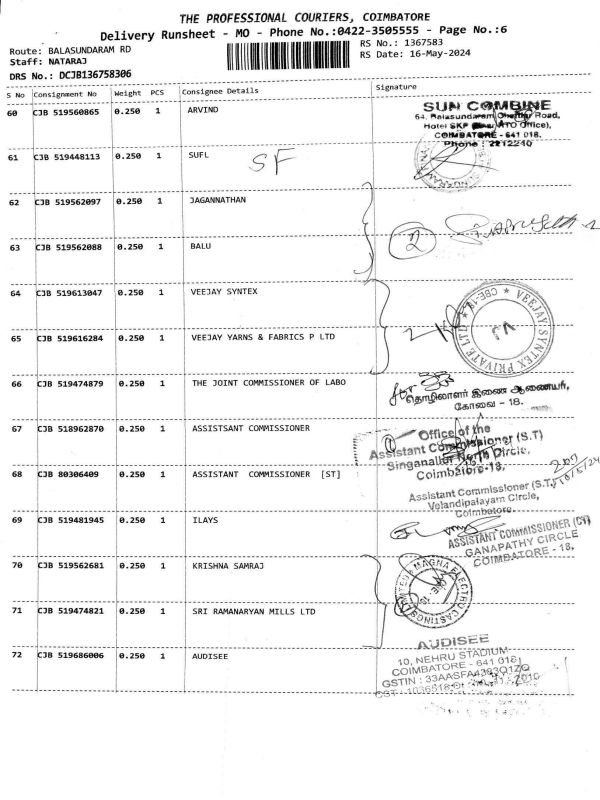 THE PROFESSIONAL COURIERS, COIMBATORE
Delivery Runsheet - MO - Phone No.:0422-3505555 - Page No.:6
Route: BALASUNDARAM RD
Staff: NATARAJ
DRS No.: DCJB136758306
RS No.: 1367583
RS Date: 16-May-2024
S No Consignment No Weight PCS Consignee Details Signature
60 CJB 519560865 0.250 1 ARVIND
SUN COMBINE
64, Balasundaram Road,
Hotel SKP RTO Office),
COIMBATORE - 641 018.
Phone : 2212240
61 CJB 519448113 0.250 1 SUFL SF
62 CJB 519562097 0.250 1 JAGANNATHAN
2
63 CJB 519562088 0.250 1 BALU
64 CJB 519613047 0.250 1 VEEJAY SYNTEX
VEEJAY SYNTEX PRIVATE LTD * CBE-18 *
65 CJB 519616284 0.250 1 VEEJAY YARNS & FABRICS P LTD
66 CJB 519474879 0.250 1 THE JOINT COMMISSIONER OF LABO
for
தொழிலாளர் இணை ஆணையர்,
கோவை - 18.
67 CJB 518962870 0.250 1 ASSISTSANT COMMISSIONER
Office of the
Assistant Commissioner (S.T)
Singanallur North Circle,
Coimbatore-18.
68 CJB 80306409 0.250 1 ASSISTANT COMMISSIONER [ST]
Assistant Commissioner (S.T.)
Velandipalayam Circle,
Coimbatore.
69 CJB 519481945 0.250 1 ILAYS
ASSISTANT COMMISSIONER (CT)
GANAPATHY CIRCLE
COIMBATORE - 18.
70 CJB 519562681 0.250 1 KRISHNA SAMRAJ
MAGNA ELECTRO CASTINGS LIMITED
71 CJB 519474821 0.250 1 SRI RAMANARYAN MILLS LTD
72 CJB 519686006 0.250 1 AUDISEE
AUDISEE
10, NEHRU STADIUM
COIMBATORE - 641 018
GSTIN : 33AASFA4393Q1ZQ